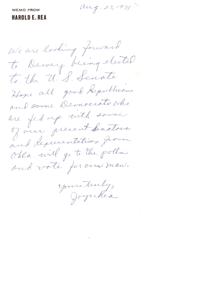 MEMO FROM
HAROLD E. REA
Aug. 23, 1978
We are looking forward
to Dewey being elected
to the U S Senate
Hope all good Republicans
and some Democrats who
are fed up with some
of our present Senators
and Representatives from
Okla will go to the polls
and vote for our man.
Yours truly,
Joyce Rea